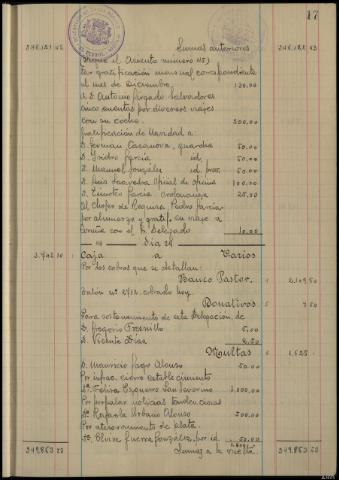 17
Sumas anteriores
(Sigue el Asiento número 115)
ter gratificación mensual correspondiente
al mes de Diciembre. 120.00
A D. Antonio Jurado Salvadores
cinco cuentas por diversos viajes
con su coche. 300.00
Gratificación de Navidad a:
D. German Casanova, guardia 50.00
D. Isidro Garcia id. 50.00
D. Manuel Gonzalez id. 50.00
D. Luis Saavedra Oficial de Oficina 100.00
D. Timoteo Garcia 25.00
Al Chofer de Requisa Pedro Garcia
por almuerzo y gratif. en viaje a
con el Sr. Delegado 10.00
Dia 24
Caja a Varios
Por los cobros que se detallan:
Banco Pastor. 2.109.50
Talón nº 2712 cobrado hoy
Donativos 5 7.50
Para sostenimiento de esta Delegación de
D. Gregorio 5.00
D. Vicente Díaz 2.50
Multas 1.625
D. Mauricio Jago Alonso 50.00
Por infrac. cierre establecimiento
Dª Felisa Ezquerra San Severino 1.000.00
Por propalar noticias tendenciosas
Dª Rafaela Urbano Alonso 500.00
Por atesoramiento de plata
Dª Elvira Guerra Gonzalez, por id.
Sumas a la vuelta